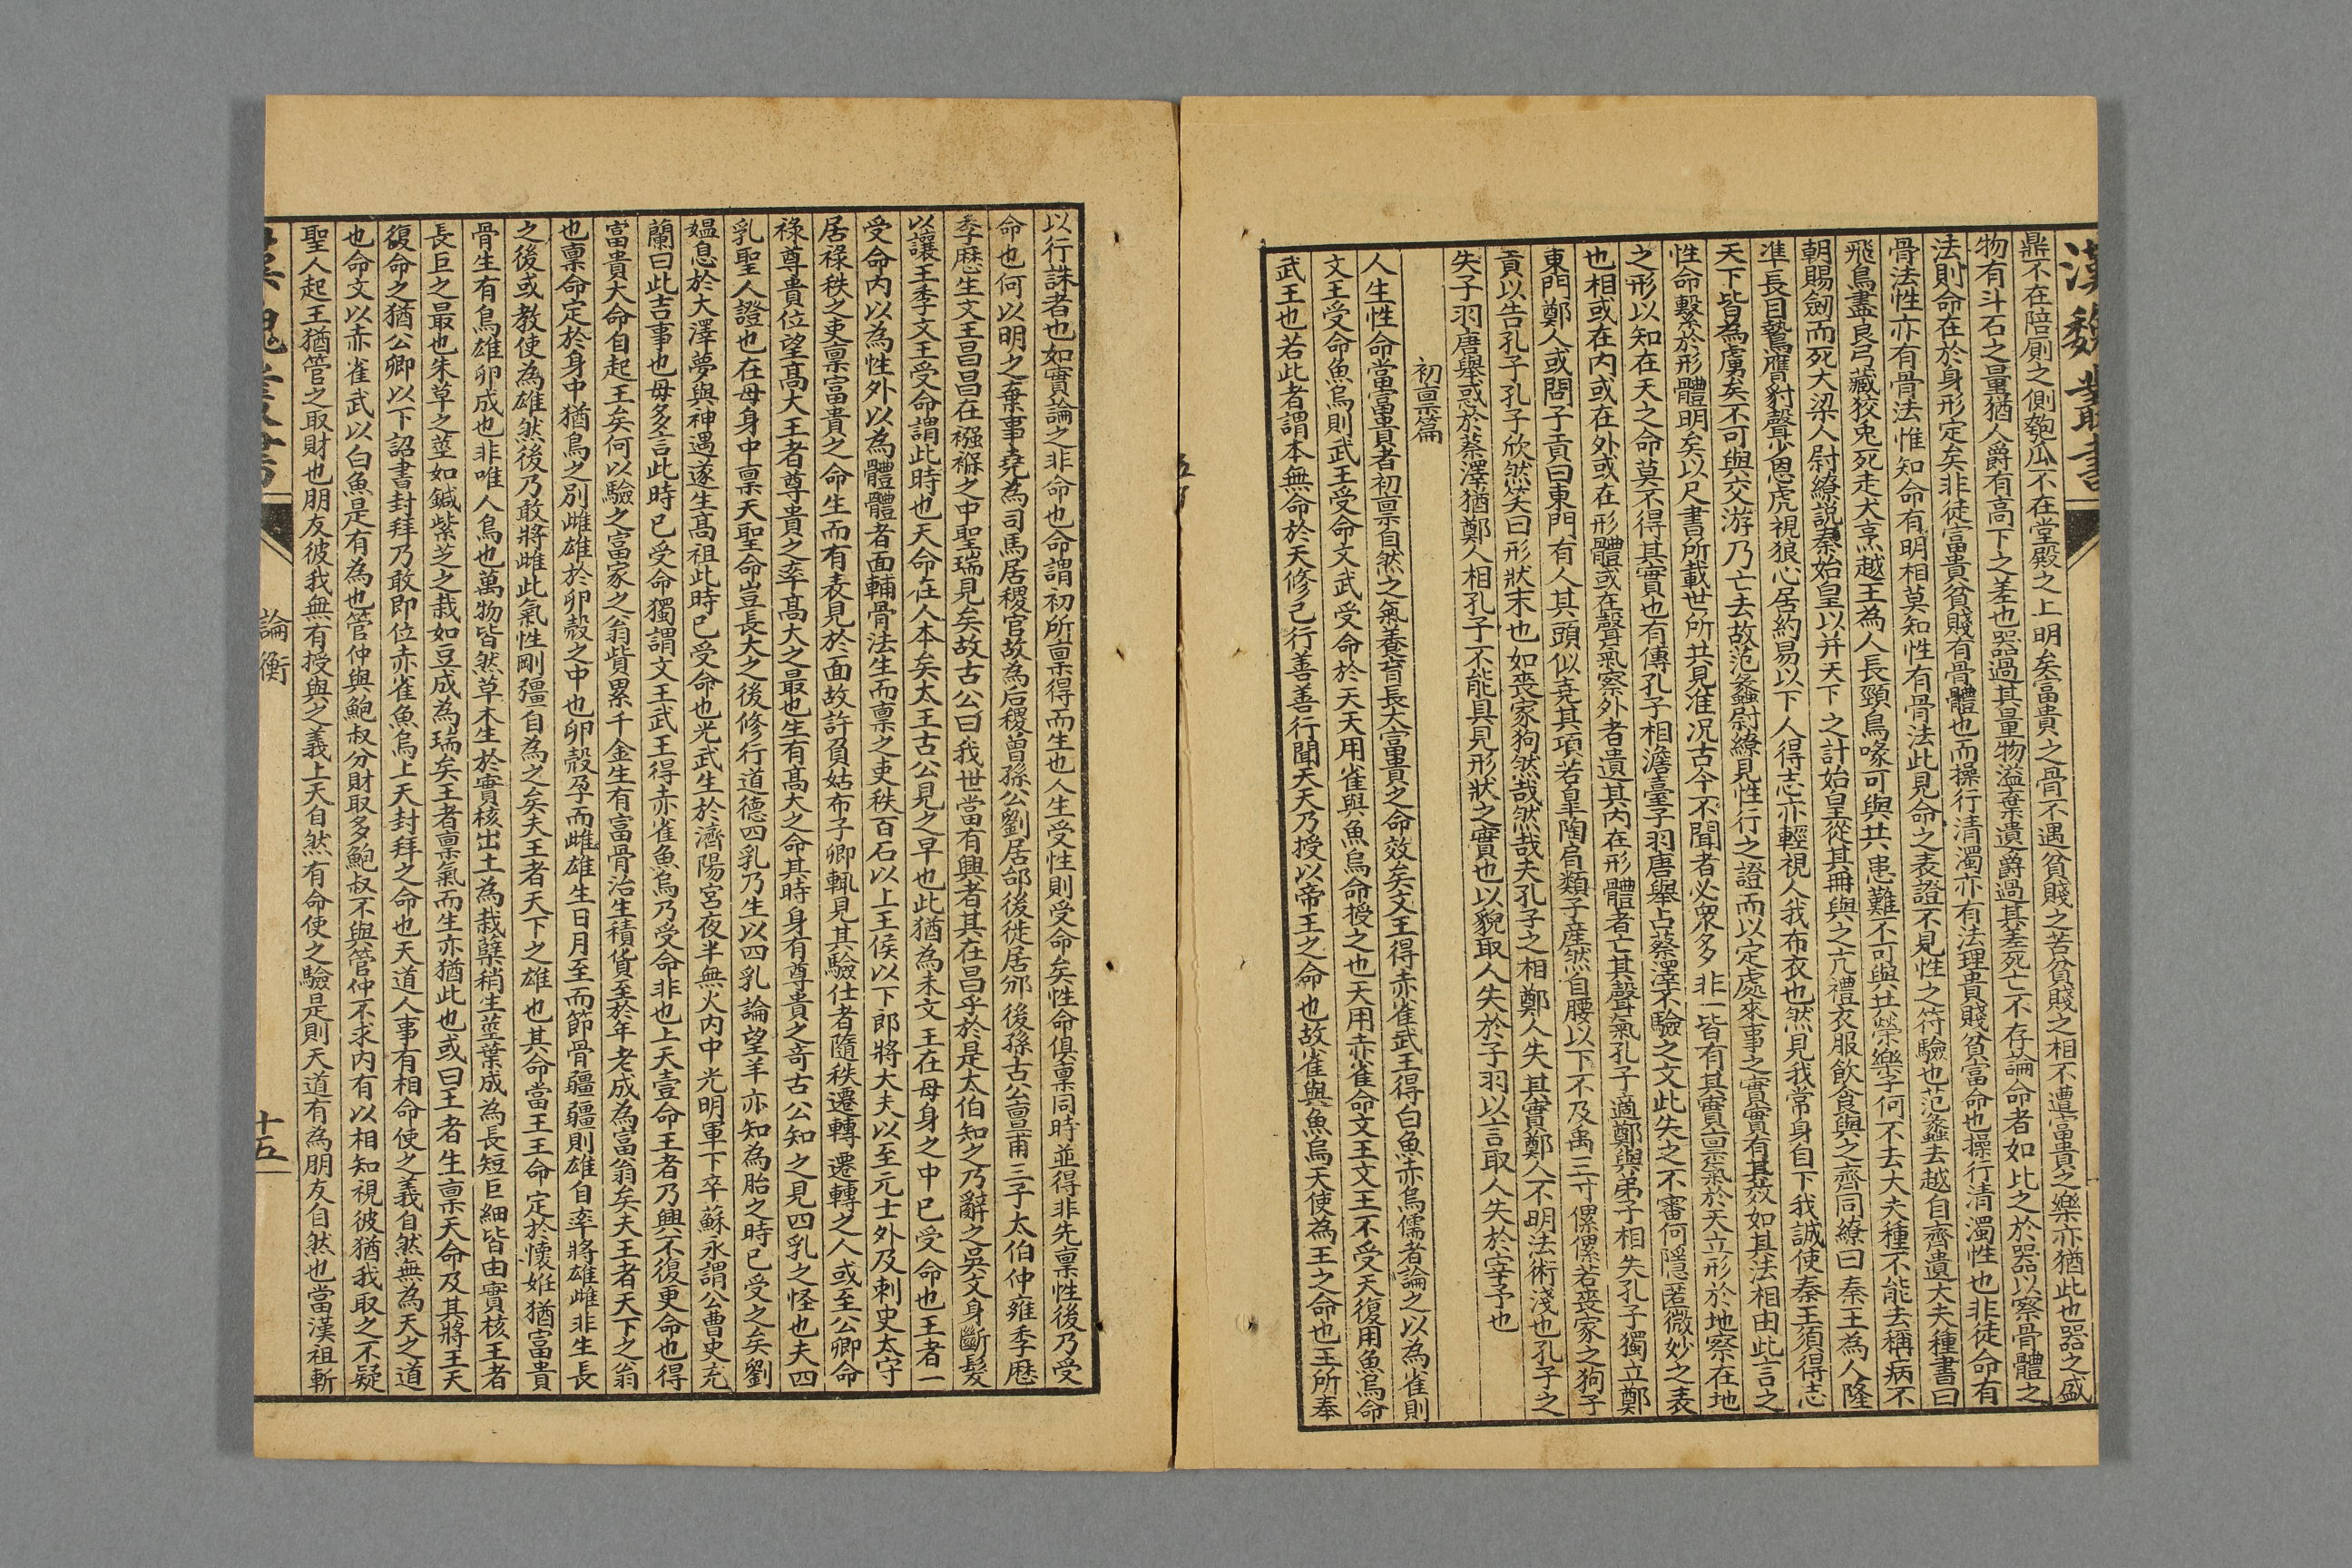 漢魏叢書
鼎不在陪厠之側匏瓜不在堂殿之上明矣富貴之骨不遇貧賤之苦貧賤之相不遭富貴之樂亦猶此也器之盛
物有斗石之量猶人爵有高下之差也器過其量物溢棄遺爵過其差死亡不存論命者如比之於器以察骨體之
法則命在於身形定矣非徒富貴貧賤有骨體也而操行清濁亦有法理貴賤貧富命也操行清濁性也非徒命有
骨法性亦有骨法惟知命有明相莫知性有骨法此見命之表證不見性之符驗也范蠡去越自齊遺大夫種書曰
飛鳥盡良弓藏狡兎死走犬烹越王為人長頸鳥喙可與共患難不可與共榮樂子何不去大夫種不能去稱病不
朝賜劔而死大梁人尉繚說秦始皇以并天下之計始皇從其冊與之亢禮衣服飲食與之齊同繚曰秦王為人隆
準長目鷙膺豺聲少恩虎視狼心居約易以下人得志亦輕視人我布衣也然見我常身自下我誠使秦王須得志
天下皆為虜矣不可與交游乃亡去故范蠡尉繚見性行之證而以定處來事之實實有其效如其法相由此言之
性命繫於形體明矣以尺書所載世所共見准况古今不聞者必衆多非一皆有其實稟氣於天立形於地察在地
之形以知在天之命莫不得其實也有傳孔子相澹臺子羽唐舉占蔡澤不驗之文此失之不審何隱匿微妙之表
也相或在内或在外或在形體或在聲氣察外者遺其内在形體者亡其聲氣孔子適鄭與弟子相失孔子獨立鄭
東門鄭人或問子貢曰東門有人其頭似堯其項若皐陶肩類子產然自腰以下不及禹三寸傫傫若喪家之狗子
貢以告孔子孔子欣然笑曰形狀末也如喪家狗然哉然哉夫孔子之相鄭人失其實鄭人不明法術淺也孔子之
失子羽唐舉惑於蔡澤猶鄭人相孔子不能具見形狀之實也以貌取人失於子羽以言取人失於宰予也
初稟篇
人生性命當富貴者初稟自然之氣養育長大富貴之命效矣文王得赤雀武王得白魚赤烏儒者論之以為雀則
文王受命魚烏則武王受命文武受命於天天用雀與魚烏命授之也天用赤雀命文王文王不受天復用魚烏命
武王也若此者謂本無命於天修己行善善行聞天天乃授以帝王之命也故雀與魚烏天使為王之命也王所奉
以行誅者也如實論之非命也命謂初所稟得而生也人生受性則受命矣性命俱稟同時並得非先稟性後乃受
命也何以明之棄事堯為司馬居稷官故為后稷曾孫公劉居邰後徙居邠後孫古公亶甫三子太伯仲雍季歷
季歷生文王昌昌在襁褓之中聖瑞見矣故古公曰我世當有興者其在昌乎於是太伯知之乃辭之吳文身斷髮
以讓王季文王受命謂此時也天命在人本矣太王古公見之早也此猶為未文王在母身之中已受命也王者一
受命内以為性外以為體體者面輔骨法生而稟之吏秩百石以上王侯以下郎將大夫以至元士外及刺史太守
居祿秩之吏稟富貴之命生而有表見於面故許負姑布子卿輒見其驗仕者隨秩遷轉遷轉之人或至公卿命
祿尊貴位望高大王者尊貴之率高大之最也生有高大之命其時身有尊貴之奇古公知之見四乳之怪也夫四
乳聖人證也在母身中稟天聖命豈長大之後修行道德四乳乃生以四乳論望羊亦知為胎之時已受之矣劉
媼息於大澤夢與神遇遂生高祖此時已受命也光武生於濟陽宮夜半無火内中光明軍下卒蘇永謂公曹史充
蘭曰此吉事也毋多言此時已受命獨謂文王武王得赤雀魚烏乃受命非也上天壹命王者乃興不復更命也得
富貴大命自起王矣何以驗之富家之翁貲累千金生有富骨治生積貨至於年老成為富翁矣夫王者天下之翁
也稟命定於身中猶鳥之別雌雄於卵殼之中也卵殼孕而雌雄生日月至而節骨疆疆則雄自率將雄雌非生長
之後或教使為雄然後乃敢將雌此氣性剛彊自為之矣夫王者天下之雄也其命當王王命定於懷姙猶富貴
骨生有鳥雄卵成也非唯人鳥也萬物皆然草木生於實核出土為栽櫱稍生莖葉成為長短巨細皆由實核王者
長巨之最也朱草之莖如鍼紫芝之栽如豆成為瑞矣王者稟氣而生亦猶此也或曰王者生稟天命及其將王天
復命之猶公卿以下詔書封拜乃敢即位赤雀魚烏上天封拜之命也天道人事有相命使之義自然無為天之道
也命文以赤雀武以白魚是有為也管仲與鮑叔分財取多鮑叔不與管仲不求内有以相知視彼猶我取之不疑
聖人起王猶管之取財也朋友彼我無有授與之義上天自然有命使之驗是則天道有為朋友自然也當漢祖斬
漢魏叢書
論衡
十五